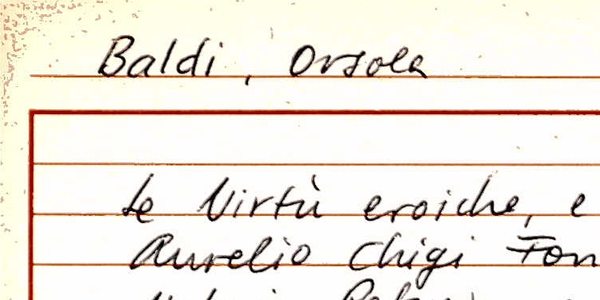 Baldi, Orsola
le Virtù eroiche, e
Aurelio Chigi Fon